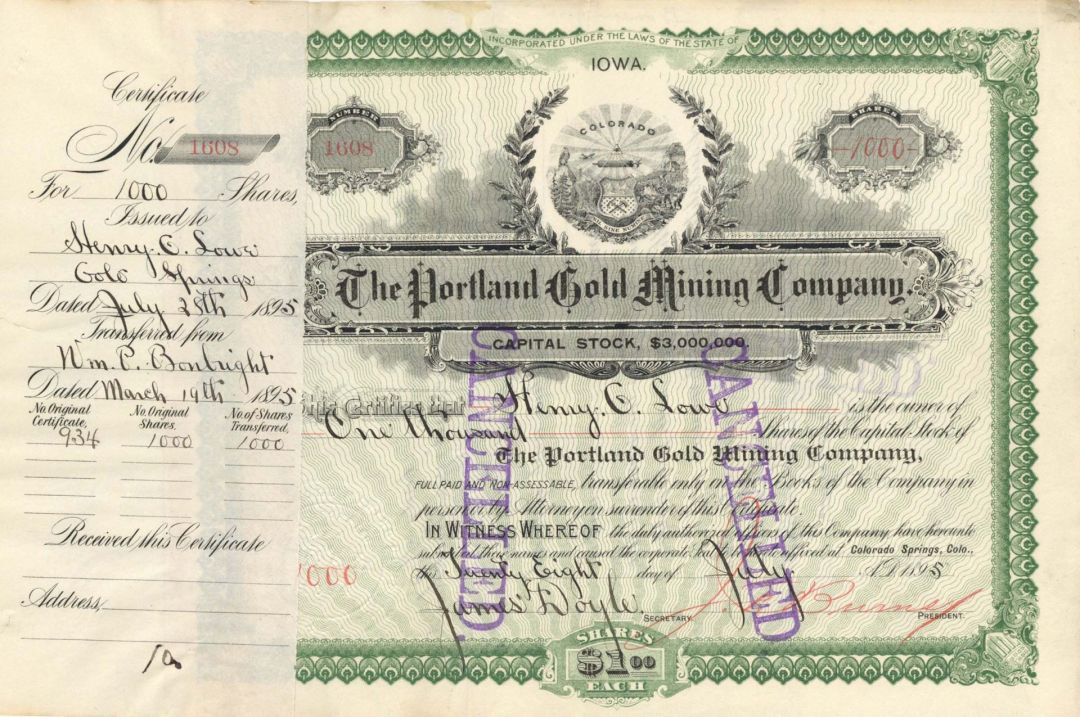 Certificate
No. 1608
For 1000 Shares,
Issued to
Henry. C. Lowe
Colo Springs
Dated July 28th 1895
Transferred from
Wm. P. Bonbright
Dated March 19th 1895
No. Original Certificate,
No. Original Shares.
No. of Shares Transferred,
934 1000 1000
Received this Certificate
Address,
INCORPORATED UNDER THE LAWS OF THE STATE OF
IOWA.
NUMBER
1608
COLORADO
SHARES
1000
The Portland Gold Mining Company.
CAPITAL STOCK, $3,000,000.
This Certifies that Henry. C. Lowe is the owner of
One thousand Shares of the Capital Stock of
The Portland Gold Mining Company,
FULL PAID AND NON-ASSESSABLE, transferable only on the Books of the Company in
person or by Attorney on surrender of this Certificate.
IN WITNESS WHEREOF the duly authorized officers of this Company have hereunto
subscribed their names and caused the corporate Seal to be hereto affixed at Colorado Springs, Colo.,
the Twenty Eight day of July A.D. 1895
1000
James Doyle. SECRETARY.
PRESIDENT.
CANCELLED
CANCELLED
SHARES
$1.00
EACH